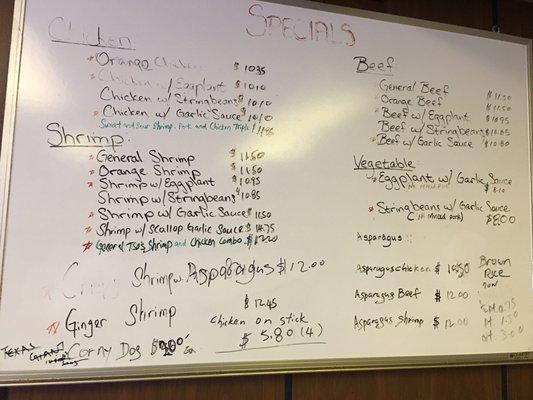 SPECIALS
Chicken
* Orange Chicken $ 10.35
* Chicken w/ Eggplant $ 10.10
Chicken w/ Stringbeans $ 10.10
* Chicken w/ Garlic Sauce $ 10.10
Sweet and Sour Shrimp, Pork and Chicken Triple
Shrimp
* General Shrimp $ 11.50
* Orange Shrimp $ 11.50
* Shrimp w/ Eggplant $ 10.95
Shrimp w/ Stringbeans $ 10.85
* Shrimp w/ Garlic Sauce $ 11.50
* Shrimp w/ Scallop Garlic Sauce $ 14.75
* General Tso's Shrimp and Chicken Combo
Shrimp w. Asparagus $ 12.00
* Ginger Shrimp $ 12.45
Chicken on stick
$ 5.80 (4)
TEXAS
Corny Dog
Beef
* General Beef $ 11.50
* Orange Beef $ 11.50
* Beef w/ Eggplant $ 10.95
Beef w/ Stringbeans $ 10.85
* Beef w/ Garlic Sauce $ 10.80
Vegetable
* Eggplant w/ Garlic Sauce
* Stringbeans w/ Garlic Sauce
(No Minced Pork) $ 8.00
Asparagus
Asparagus chicken $ 10.50
Asparagus Beef $ 12.00
Asparagus Shrimp $ 12.00
Brown
Rice
now